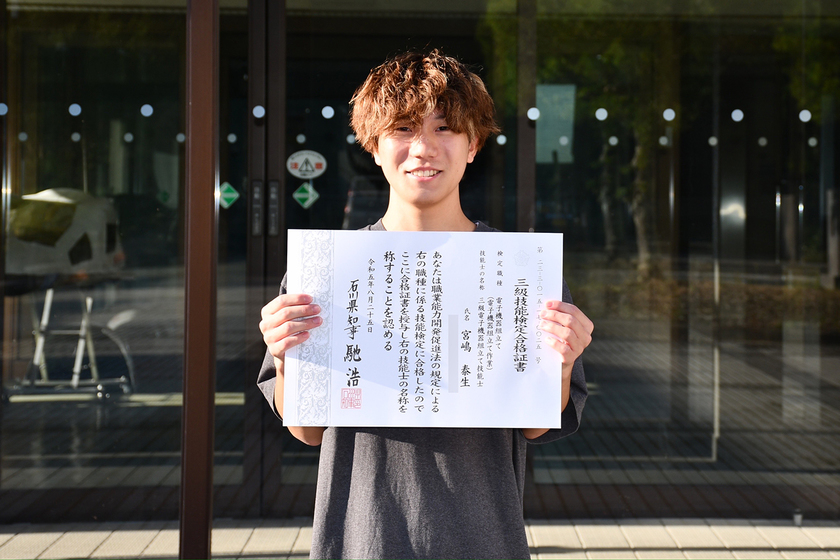 三級技能検定合格証書
検定職種 電子機器組立て
(電子機器組立て作業)
技能士の名称 三級電子機器組立て技能士
氏名 宮嶋 泰生
あなたは職業能力開発促進法の規定による
右の職種に係る技能検定に合格したので
ここに合格証書を授与し右の技能士の名称を
称することを認める
令和五年八月二十五日
石川県知事 馳 浩